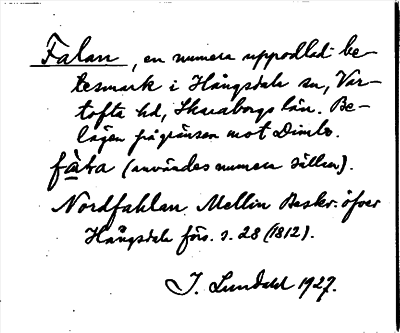 Falan, en numera uppodlad be-
tesmark i Hångsdala sn, Var-
tofta hd, Skaraborgs län. Be-
lägen på gränsen mot Dimbo.
fàɩa (användes numera sällan).
Nordfahlan. Mellin Beskr. öfver
Hångsdala förs. s. 28 (1812).
J. Lundahl 1927.